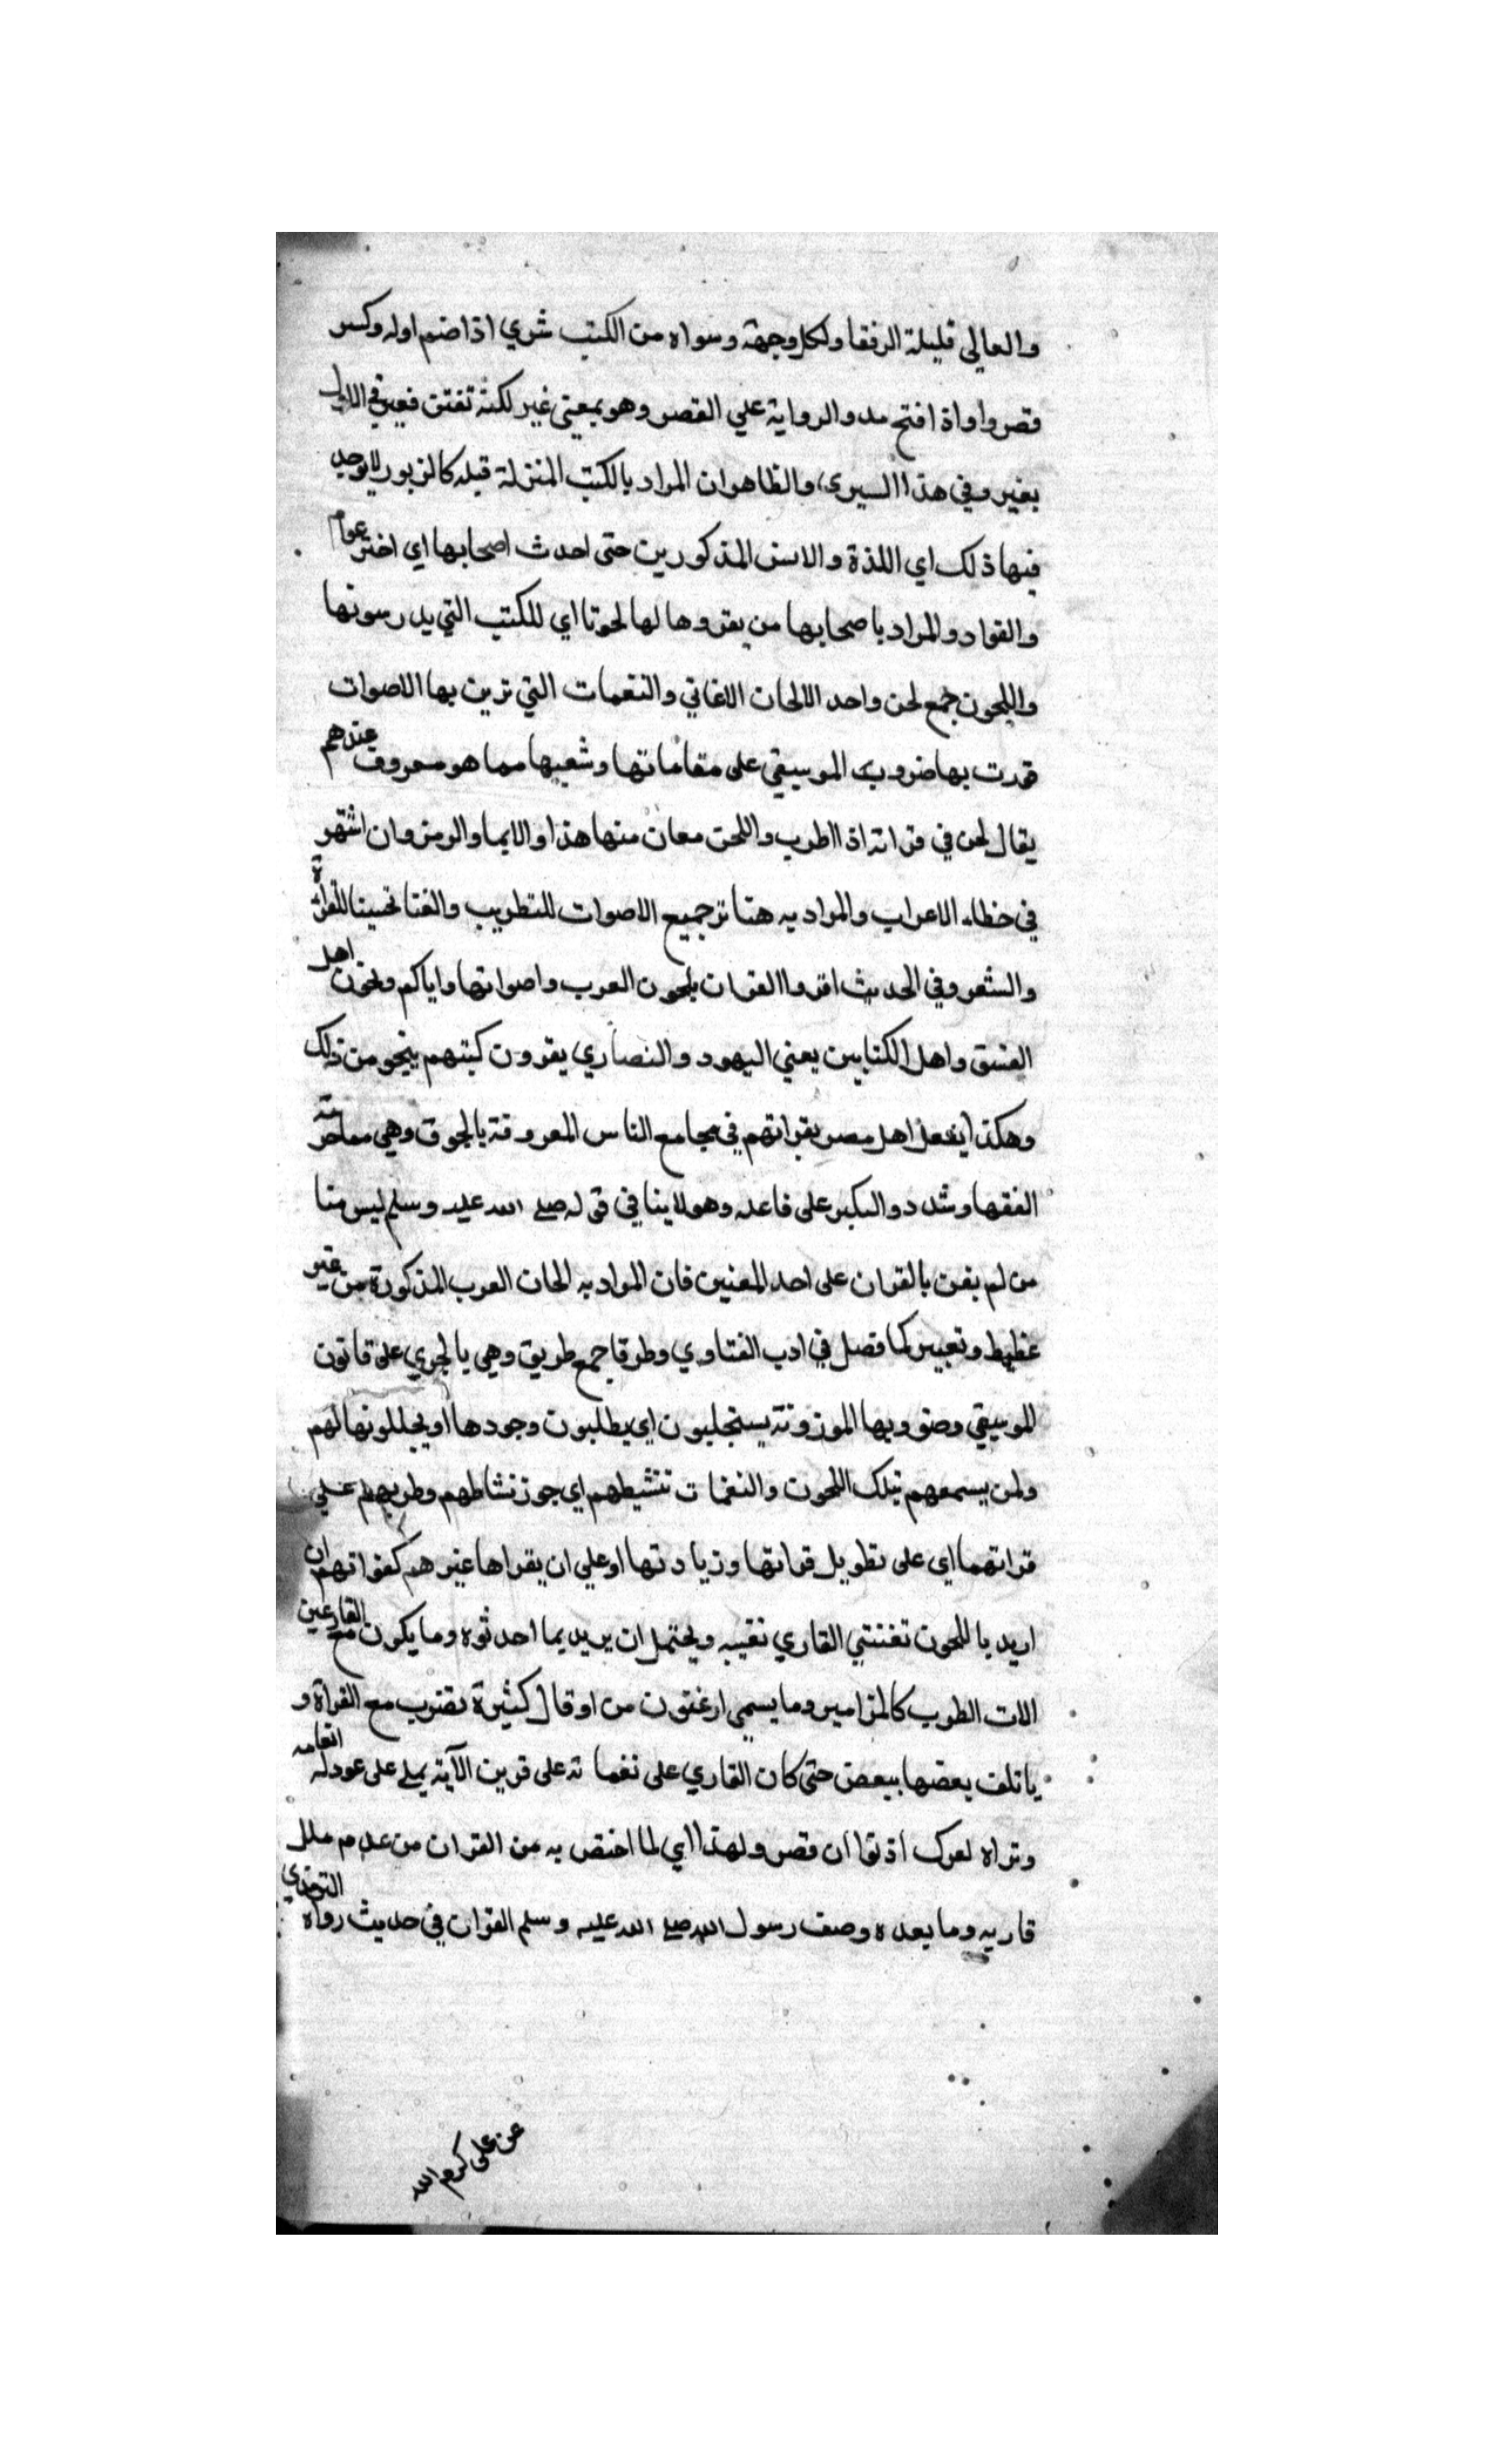 والعالي قليلة الرفقا ولكل وجهة وسواه من الكتب شري اذا ضم اوله وكسر
قصر واواذا فتح مد والرواية علي القصر وهو بمعني غير لكنه تفنن فعبر في الاول
بغير وفي هذا السيري والظاهر ان المراد بالكتب المنزلة قبله كالزبور لا يوجد
فيها ذلك اي اللذة والانس المذكورين حتى احدث اصحابها اي اخترعوا
والقواد والمراد باصحابها من يقروها لها لحونا اي للكتب التي يدرسونها
واللحون جمع لحن واحد الالحان الاغاني والنغمات التي تزين بها الاصوات
قدرت بها ضروب الموسيقي على مقاماتها وشعبها مما هو معروف عندهم
يقال لحن في قراته اذا اطرب واللحن معان منها هذا والايما والرمز وان اشتهر
في خطاء الاعراب والمراد به هنا ترجيع الاصوات للتطريب والغنا تحسينا للقراة
والشعر وفي الحديث اقروا القران بلحون العرب واصواتها واياكم ولحون اهل
الفسق واهل الكتابين يعني اليهود والنصاري يقرون كتبهم بنحو من ذلك
وهكذا يفعل اهل مصر بقراتهم في مجامع الناس المعروفة بالجوق وهي مما حرمته
الفقها وشددوا النكير على فاعله وهو لا ينافي قوله صلى الله عليه وسلم ليس منا
من لم يغن بالقران على احد المعنيين فان المراد به الحان العرب المذكورة من غير
غطيط وتغيير كما فصل في ادب الفتاوي وطرقا جمع طريق وهي يا لجري على قانون
للموسيقي وضروبها الموزونة يستجلبون اي يطلبون وجودها او يجللونها لهم
ولمن يسمعهم بتلك اللحون والنغمات تنشيطهم اي جوز نشاطهم وطربهم علي
قراتهما اي على تطويل قراتها وزيادتها او علي ان يقراها غيرهم كقراتهم ان
اريد باللحون تغنني القاري نفسه ويحتمل ان يريد بما احدثوه وما يكون مع القارءين
الات الطرب كالمزامير وما يسمي ارغنون من اوقال كثيرة تضرب مع القراة و
ياتلف بعضها ببعض حتى كان القاري على نغماته على قرين الآية يملي على عود له انغامه
وتراه لعرك اذنها ان قصر ولهذا اي لما اختص به من القران من عدم ملل
قاريه وما يعده وصف رسول الله صلى الله عليه وسلم القران في حديث رواه الترمذي
عن على كرم الله